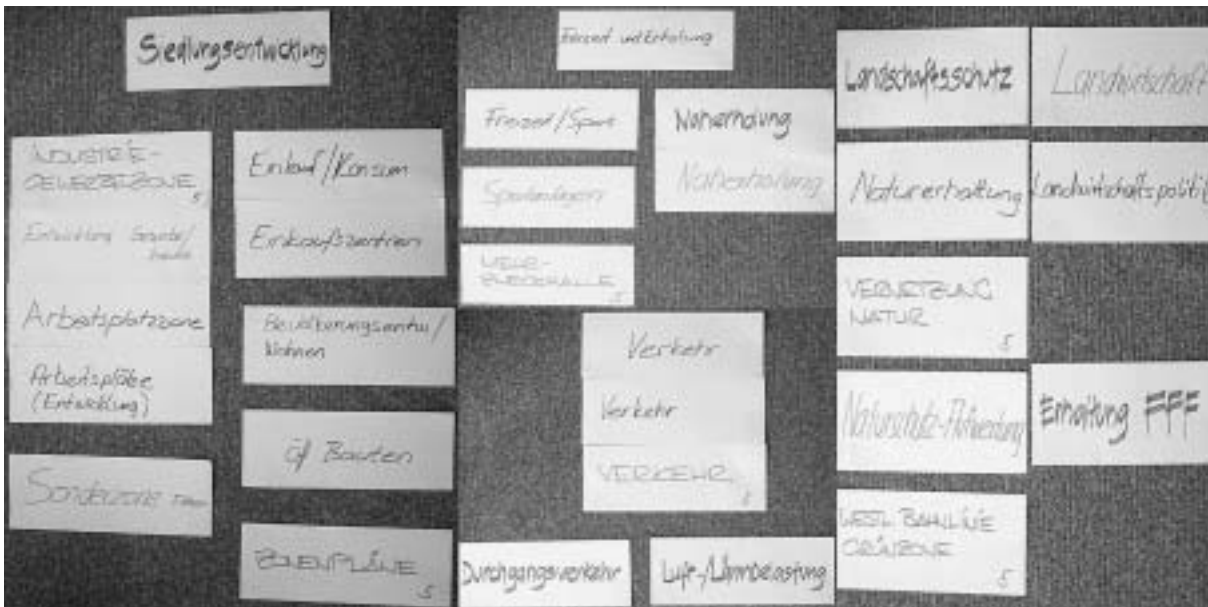 Siedlungsentwicklung
INDUSTRIE-
GEWERBEZONE
5
Entwicklung Gewerbe/
Arbeitsplatzzone
Arbeitsplätze
(Entwicklung)
Sonderzone
Einkauf/Konsum
Einkaufszentren
Bevölkerungsentw/
Wohnen
öf Bauten
ZONENPLÄNE
5
Freizeit und Erholung
Freizeit/Sport
Sportanlagen
MEHR-
ZWECKHALLE
5
Naherholung
Naherholung
Verkehr
Verkehr
VERKEHR
Durchgangsverkehr
Luft-/Lärmbelastung
Landschaftsschutz
Naturerhaltung
VERNETZUNG
NATUR
5
Naturschutz-Aufwertung
WESTL. BAHNLINIE
GRÜNZONE
5
Landwirtschaft
Landwirtschaftspolitik
Erhaltung FFF